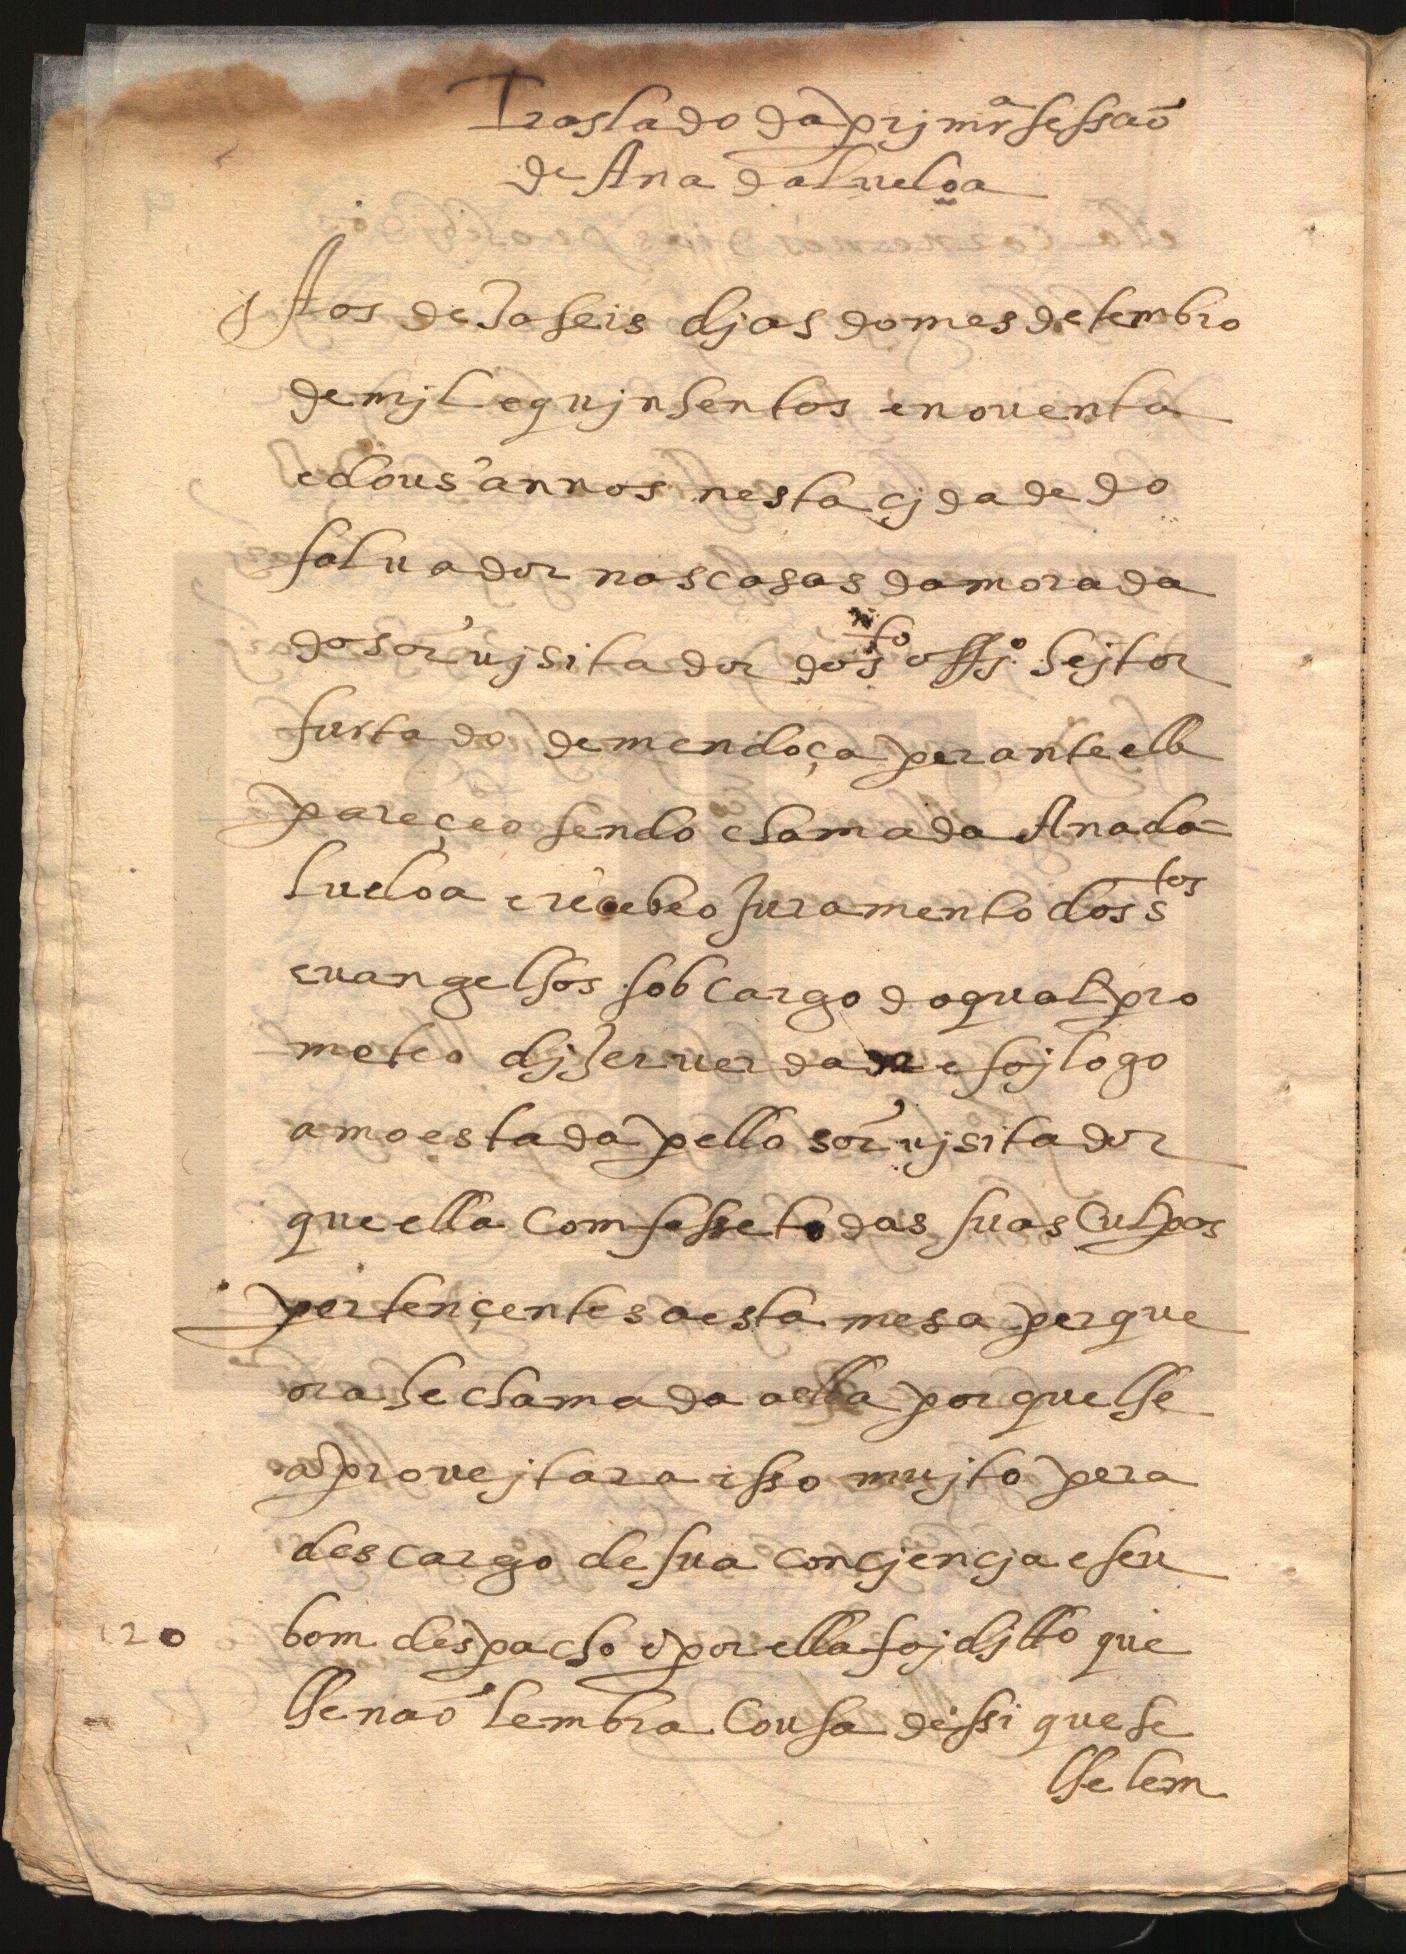 Traslado da primrª sessaõ
de Ana dalueloa
Aos dezaseis djas do mes de tembro
de mjl e qujnhentos e nouenta
e dous annos nesta çjdade do
saluador nas casas da morada
do sõr ujsitador do sto offjº hejtor
furtado de mendoça perante elle
pareçeo sendo chamada Ana da=
lueloa e recebeo Juramento dos stos
euangelhos sob cargo do qual pro
meteo djzer uerdade e foj logo
amoestada pello sõr ujsitador
que ella comfesse todas suas culpas
pertençentes a esta mesa per que
ora he chamada a ella por que lhe
aproueitara isso mujto pera
descargo de sua conçjençja e seu
bom despacho e por ella foj djtto que
lhe naõ lembra cousa de ssi que se
lhe lem